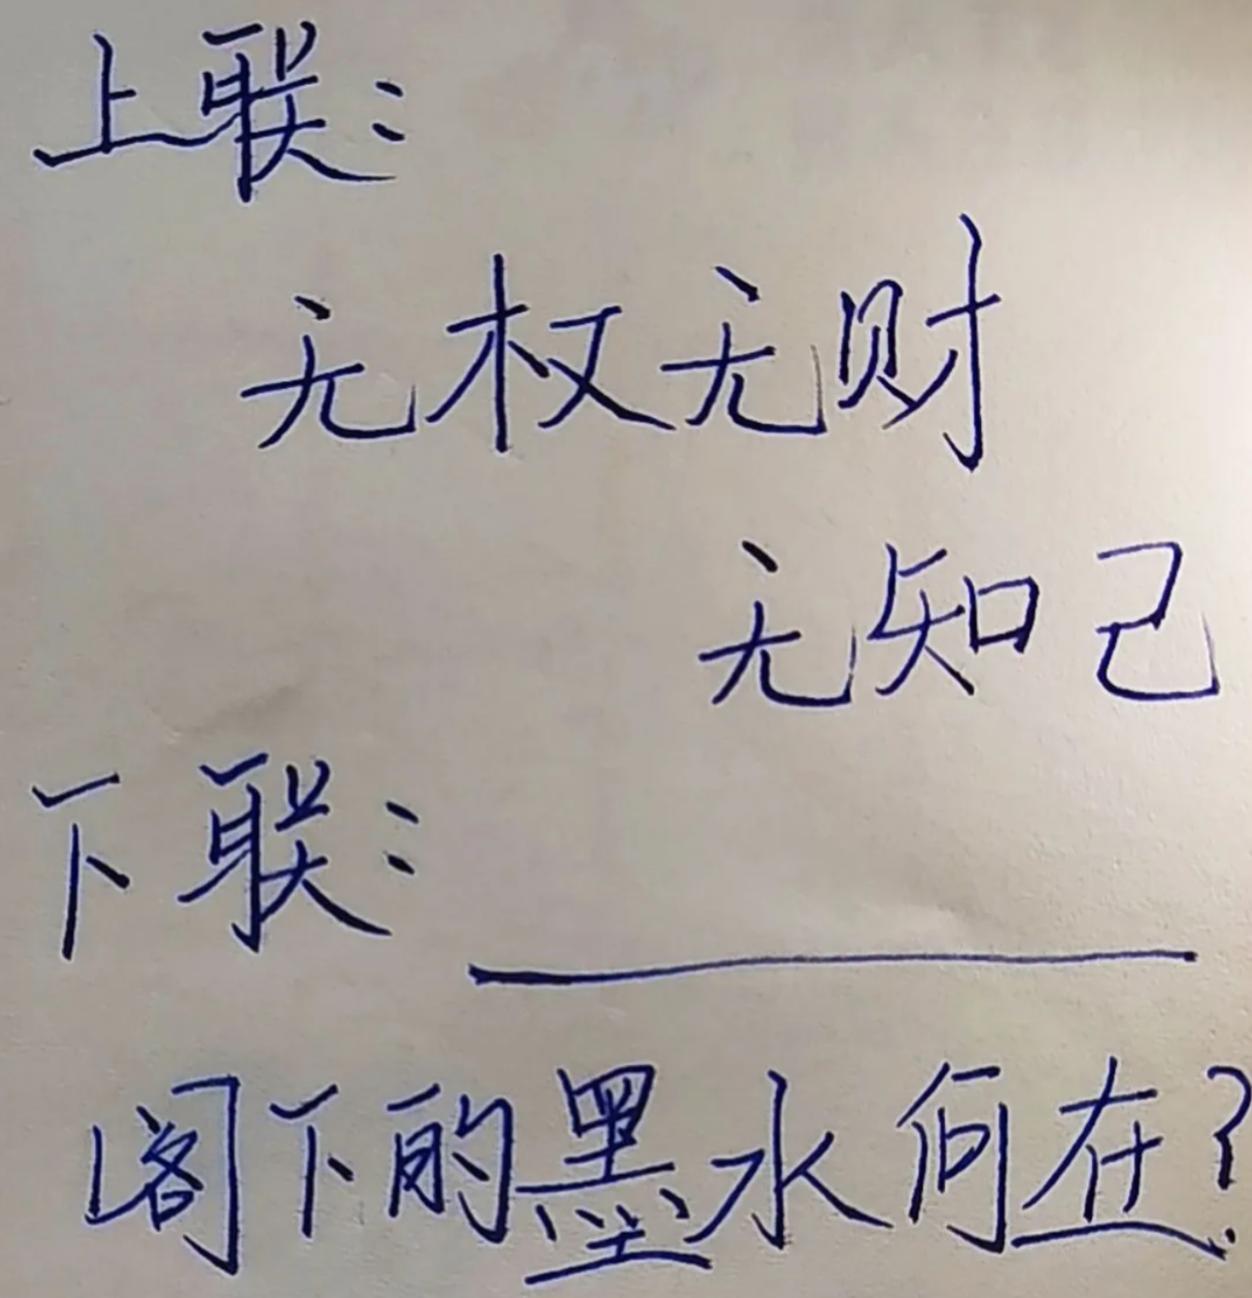 上联:
无权无财
无知己
下联:
阁下的墨水何在?